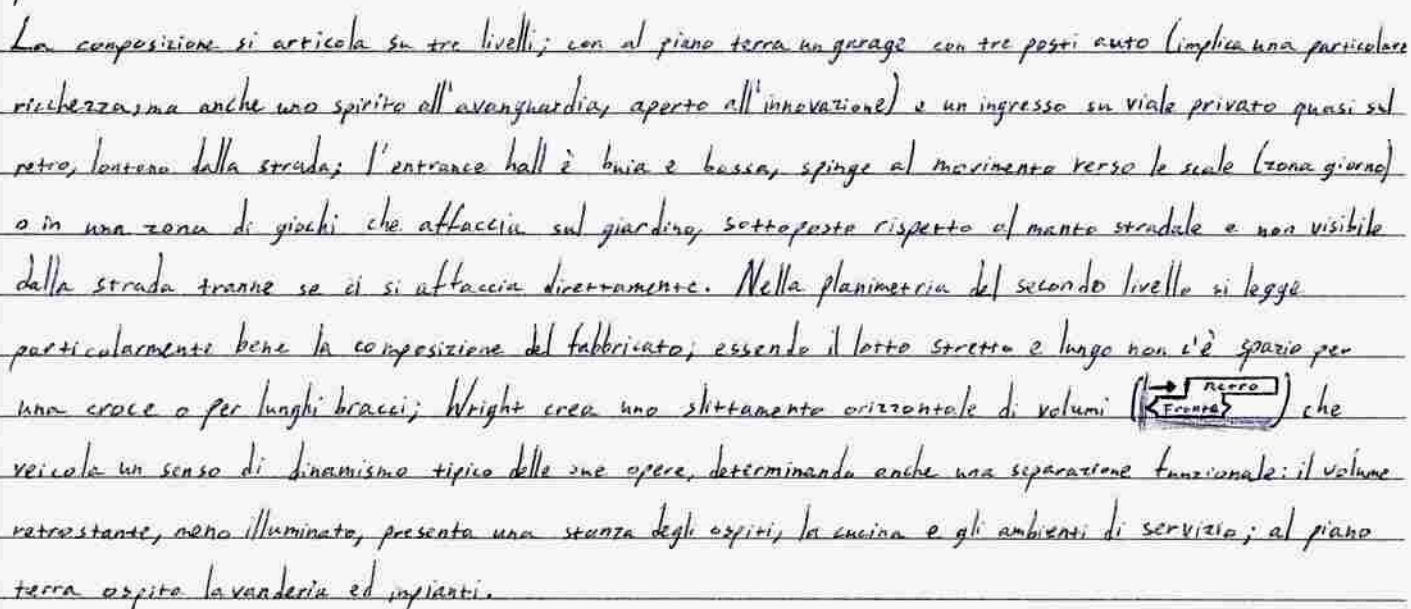 La composizione si articola su tre livelli; con al piano terra un garage con tre posti auto (implica una particolare
ricchezza, ma anche uno spirito all'avanguardia, aperto all'innovazione) e un ingresso su viale privato quasi sul
retro, lontano dalla strada; l'entrance hall è buia e bassa, spinge al movimento verso le scale (zona giorno)
o in una zona di giochi che affaccia sul giardino, sottoposto rispetto al manto stradale e non visibile
dalla strada tranne se ci si affaccia direttamente. Nella planimetria del secondo livello si legge
particolarmente bene la composizione del fabbricato; essendo il lotto stretto e lungo non c'è spazio per
una croce o per lunghi bracci; Wright crea uno slittamento orizzontale di volumi (Retro Fronte) che
veicola un senso di dinamismo tipico delle sue opere, determinando anche una separazione funzionale: il volume
retrostante, meno illuminato, presenta una stanza degli ospiti, la cucina e gli ambienti di servizio; al piano
terra ospita lavanderia ed impianti.